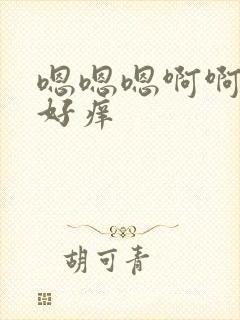 嗯嗯嗯啊啊
好痒
胡可青